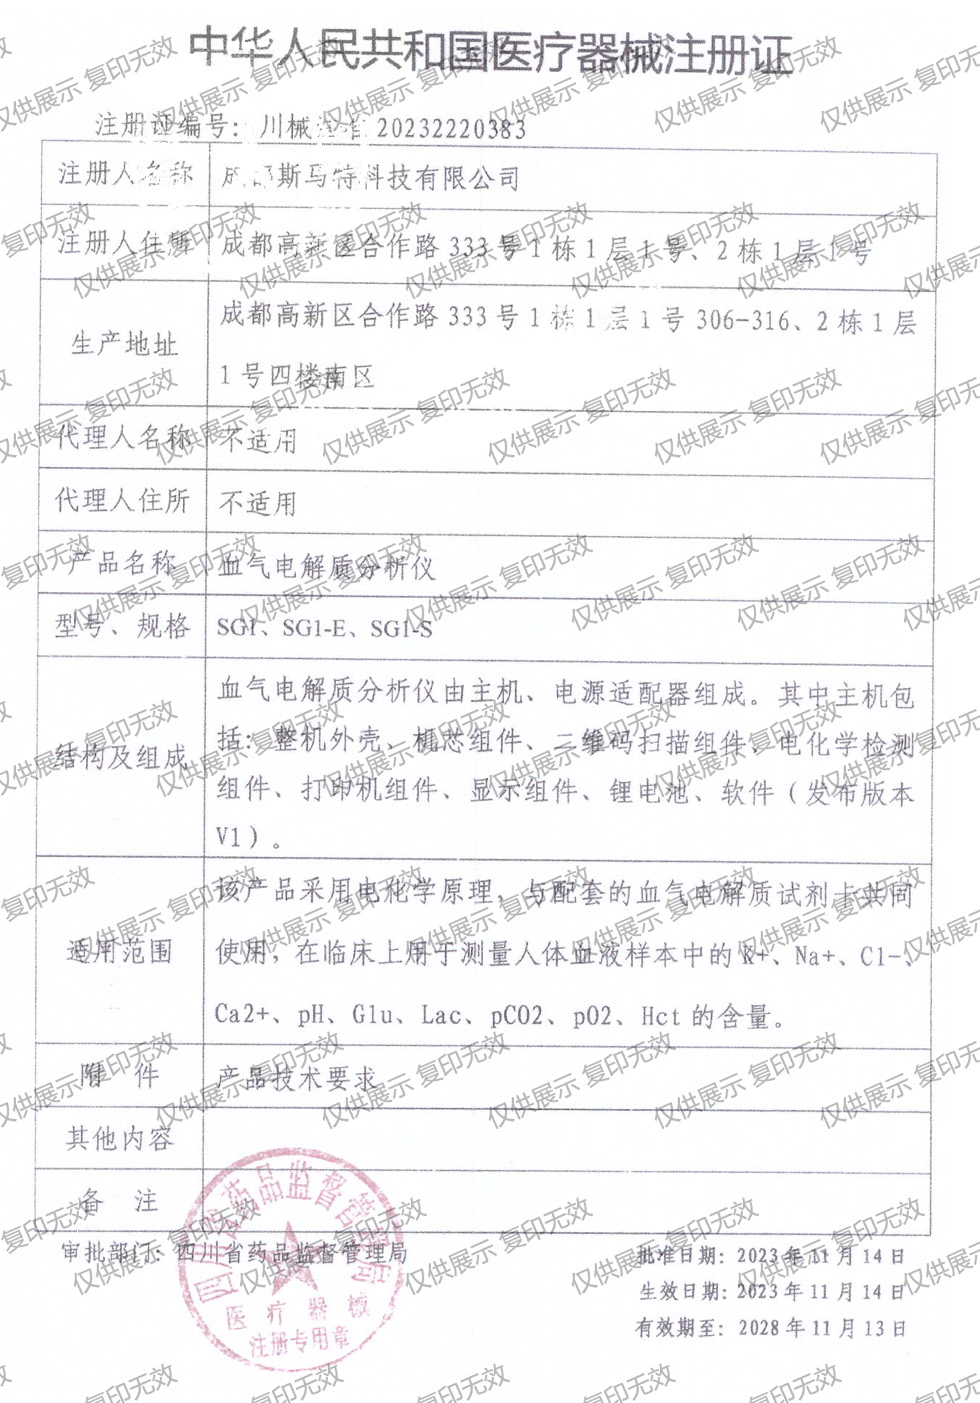 中华人民共和国医疗器械注册证
注册证编号：川械注准20232220383
注册人名称 成都斯马特科技有限公司
注册人住所 成都高新区合作路333号1栋1层1号、2栋1层1号
生产地址 成都高新区合作路333号1栋1层1号306-316、2栋1层
1号四楼南区
代理人名称 不适用
代理人住所 不适用
产品名称 血气电解质分析仪
型号、规格 SG1、SG1-E、SG1-S
结构及组成 血气电解质分析仪由主机、电源适配器组成。其中主机包
括：整机外壳、机芯组件、二维码扫描组件、电化学检测
组件、打印机组件、显示组件、锂电池、软件（发布版本
V1）。
适用范围 该产品采用电化学原理，与配套的血气电解质试剂卡共同
使用，在临床上用于测量人体血液样本中的K+、Na+、Cl-、
Ca2+、pH、Glu、Lac、pCO2、pO2、Hct的含量。
附 件 产品技术要求
其他内容
备 注
审批部门：四川省药品监督管理局
批准日期：2023年11月14日
生效日期：2023年11月14日
有效期至：2028年11月13日
四川省药品监督管理局
医疗器械
注册专用章
仅供展示 复印无效